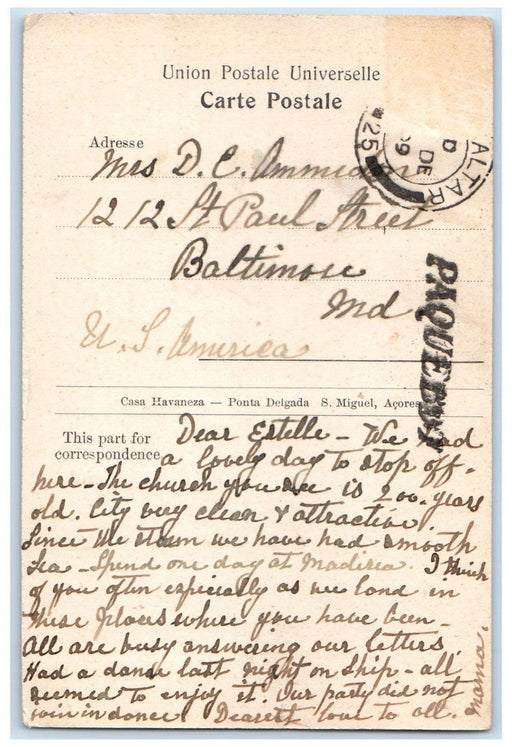 Union Postale Universelle
Carte Postale
Adresse
Mrs D. C. Ammidon
1212 St Paul Street
Baltimore
Md
U. S. America
ALTAR
D
DE
09
425
PAQUEBOT
Casa Havaneza — Ponta Delgada S. Miguel, Açores
This part for
correspondence
Dear Estelle – We had
a lovely day to stop off-
here – The church you see is 200. years
old. City very clean & attractive.
Since the storm we have had smooth
Sea – Spend one day at Madiera. I think
of you often especially as we land in
these places where you have been –
All are busy answering our letters.
Had a dance last night on ship – all
seemed to enjoy it. Our party did not
join in dance. Dearest love to all.
Mama.